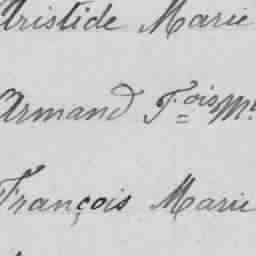 Aristide Marie
Armand F.ois M.
François Marie